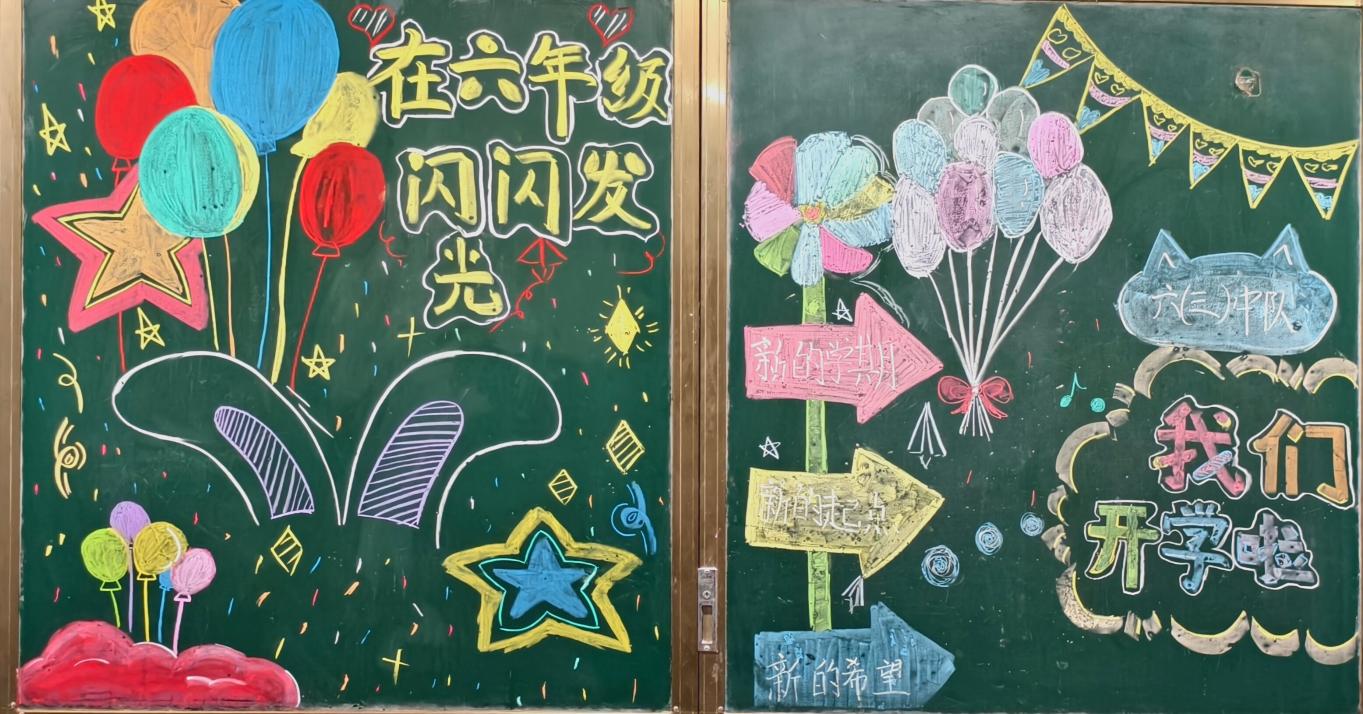 在六年级
闪闪发
光
六(三)中队
新的学期
我们
开学啦
新的起点
新的希望